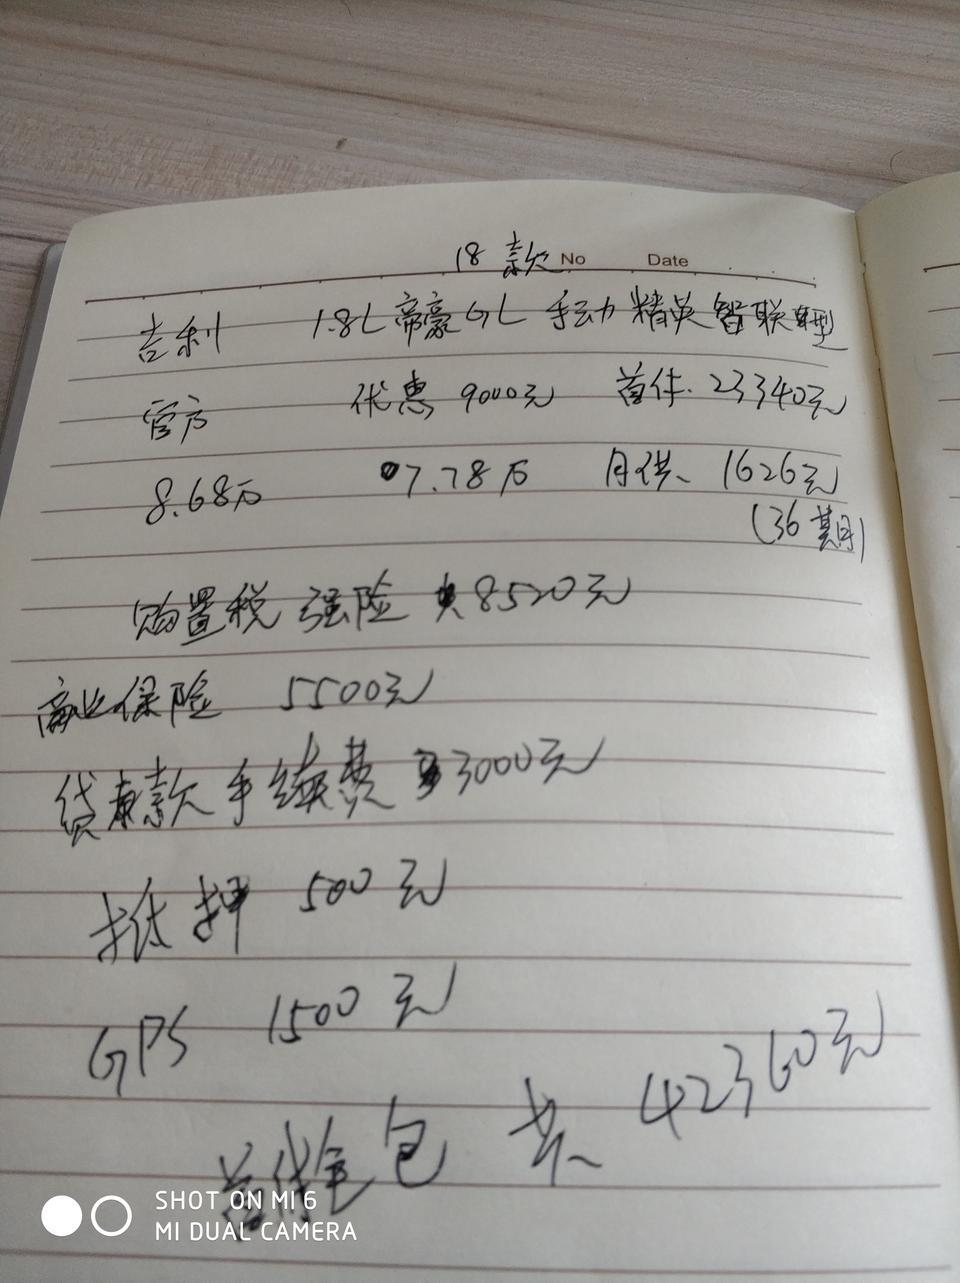 18款 No Date
吉利 1.8L 帝豪GL 手动 精英智联型
官方 优惠 9000元 首付. 23340元
8.68万 7.78万 月供、1626元
(36期)
购置税 强险 共8520元
商业保险 5500元
贷款手续费 3000元
抵押 500元
GPS 1500元
首付 包 共 42360元
SHOT ON MI 6
MI DUAL CAMERA